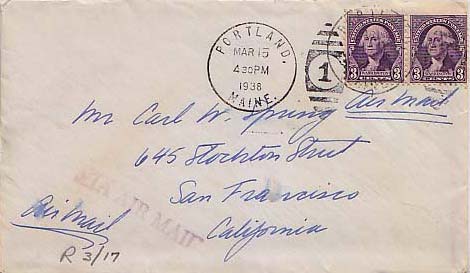 PORTLAND,
MAR 15
4 30 PM
1936
MAINE.
1
3 3
Air Mail
Mr Carl W. Spring
645 Stockton Street
San Francisco
California
VIA AIR MAIL
Air Mail
R 3/17